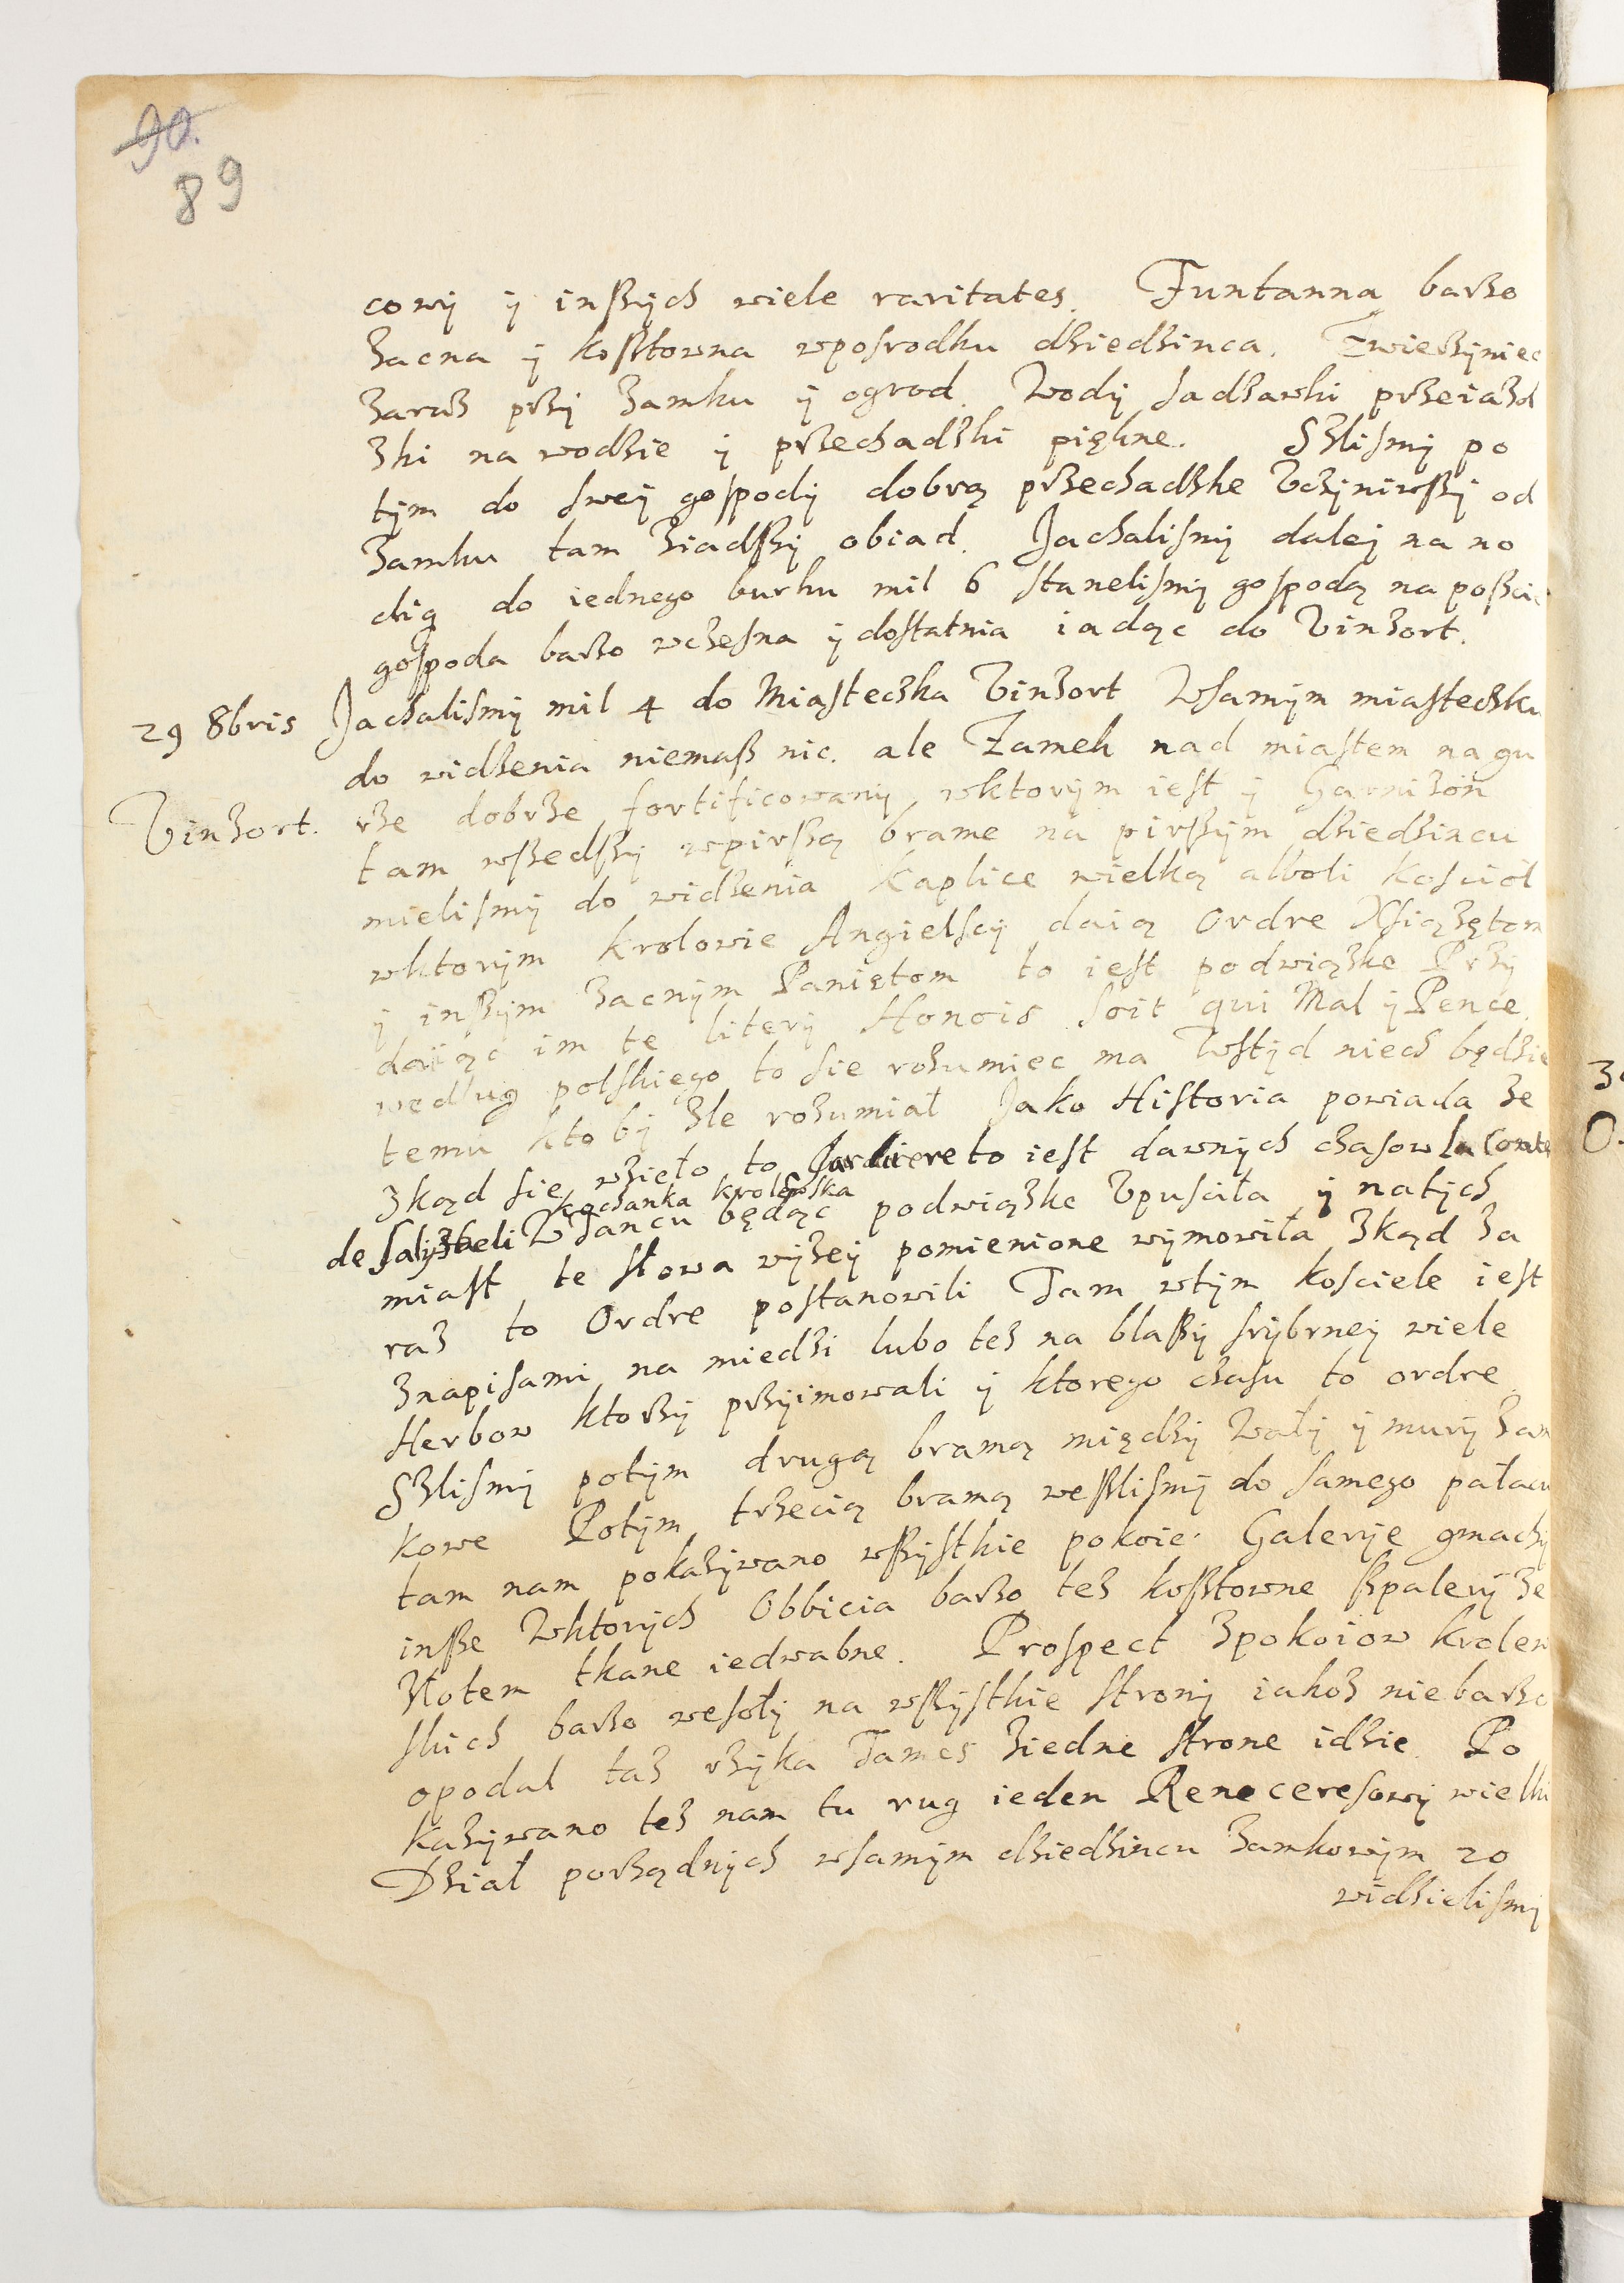 90.
89
cowy y inszych wiele raritates. Funtanna barzo
zacna y kosztowna wposrodku dziedzinca. Zwierzyniec
zaraz przy zamku y ogrod. Wody sadzawki przeiazd
zki na wodzie y przechadzki piękne. Szlismy po
tym do swey gospody dobrą przechadzke Uczyniwszy od
zamku tam ziadszy obiad. Jachalismy daley na no
clig do iednego burku mil 6 stanelismy gospodą na
gospoda barzo wczesna y dostatnia iadąc do Vinzort.
29 8bris Jachalismy mil 4 do Miasteczka Vinzort Wsamym miasteczku
do widzenia niemasz nic. ale Zamek nad miastem na gu
Vinzort. rze dobrze fortificowany wktorym iest y Garnizon
tam wszedszy wpirszą brame na pirszym dziedzincu
mielismy do widzenia kaplice wielką alboli kosciół
wktorym krolowie Angielscy daią Ordre Xsiążętom
y inszym zacnym Paniętom to iest podwiązke Przy
daiąc im te litery Honois soit qui Mal y Pence.
wedlug polskiego to sie rozumiec ma Wstyd niech będzie
temu kto by zle rozumiał Jako Historia powiada ze
zkąd sie wzieło to to iest dawnych czasow la Conte
kochanka krolewska
de Salyzberi WTancu będąc podwiązke Upusciła y natych
miast te słowa wyzey pomienione wymowiła zkąd za
raz to Ordre postanowili Tam wtym kosciele iest
znapisami na miedzi lubo tez na blaszy srybrney wiele
Herbow ktorzy przyimowali y ktorego czasu to ordre.
Szlismy potym drugą bramą między Wały y mury zam
kowe Potym trzecią bramą weszlismy do samego pałacu
tam nam pokazywano wszystkie pokoie. Galerye gmachy
insze Wktorych Obbicia barzo tez kosztowne szpalery ze
złotem tkane iedwabne. Prospect zpokoiow krolew
skich barzo wesoły na wszystkie strony iakoz niebarzo
opodal taz rzyka Tames ziedne strone idzie. Po
kazywano tez nam tu rug ieden Renoceresowy wielki
Dział porządnych wsamym dziedzincu zamkowym 20
widzielismy